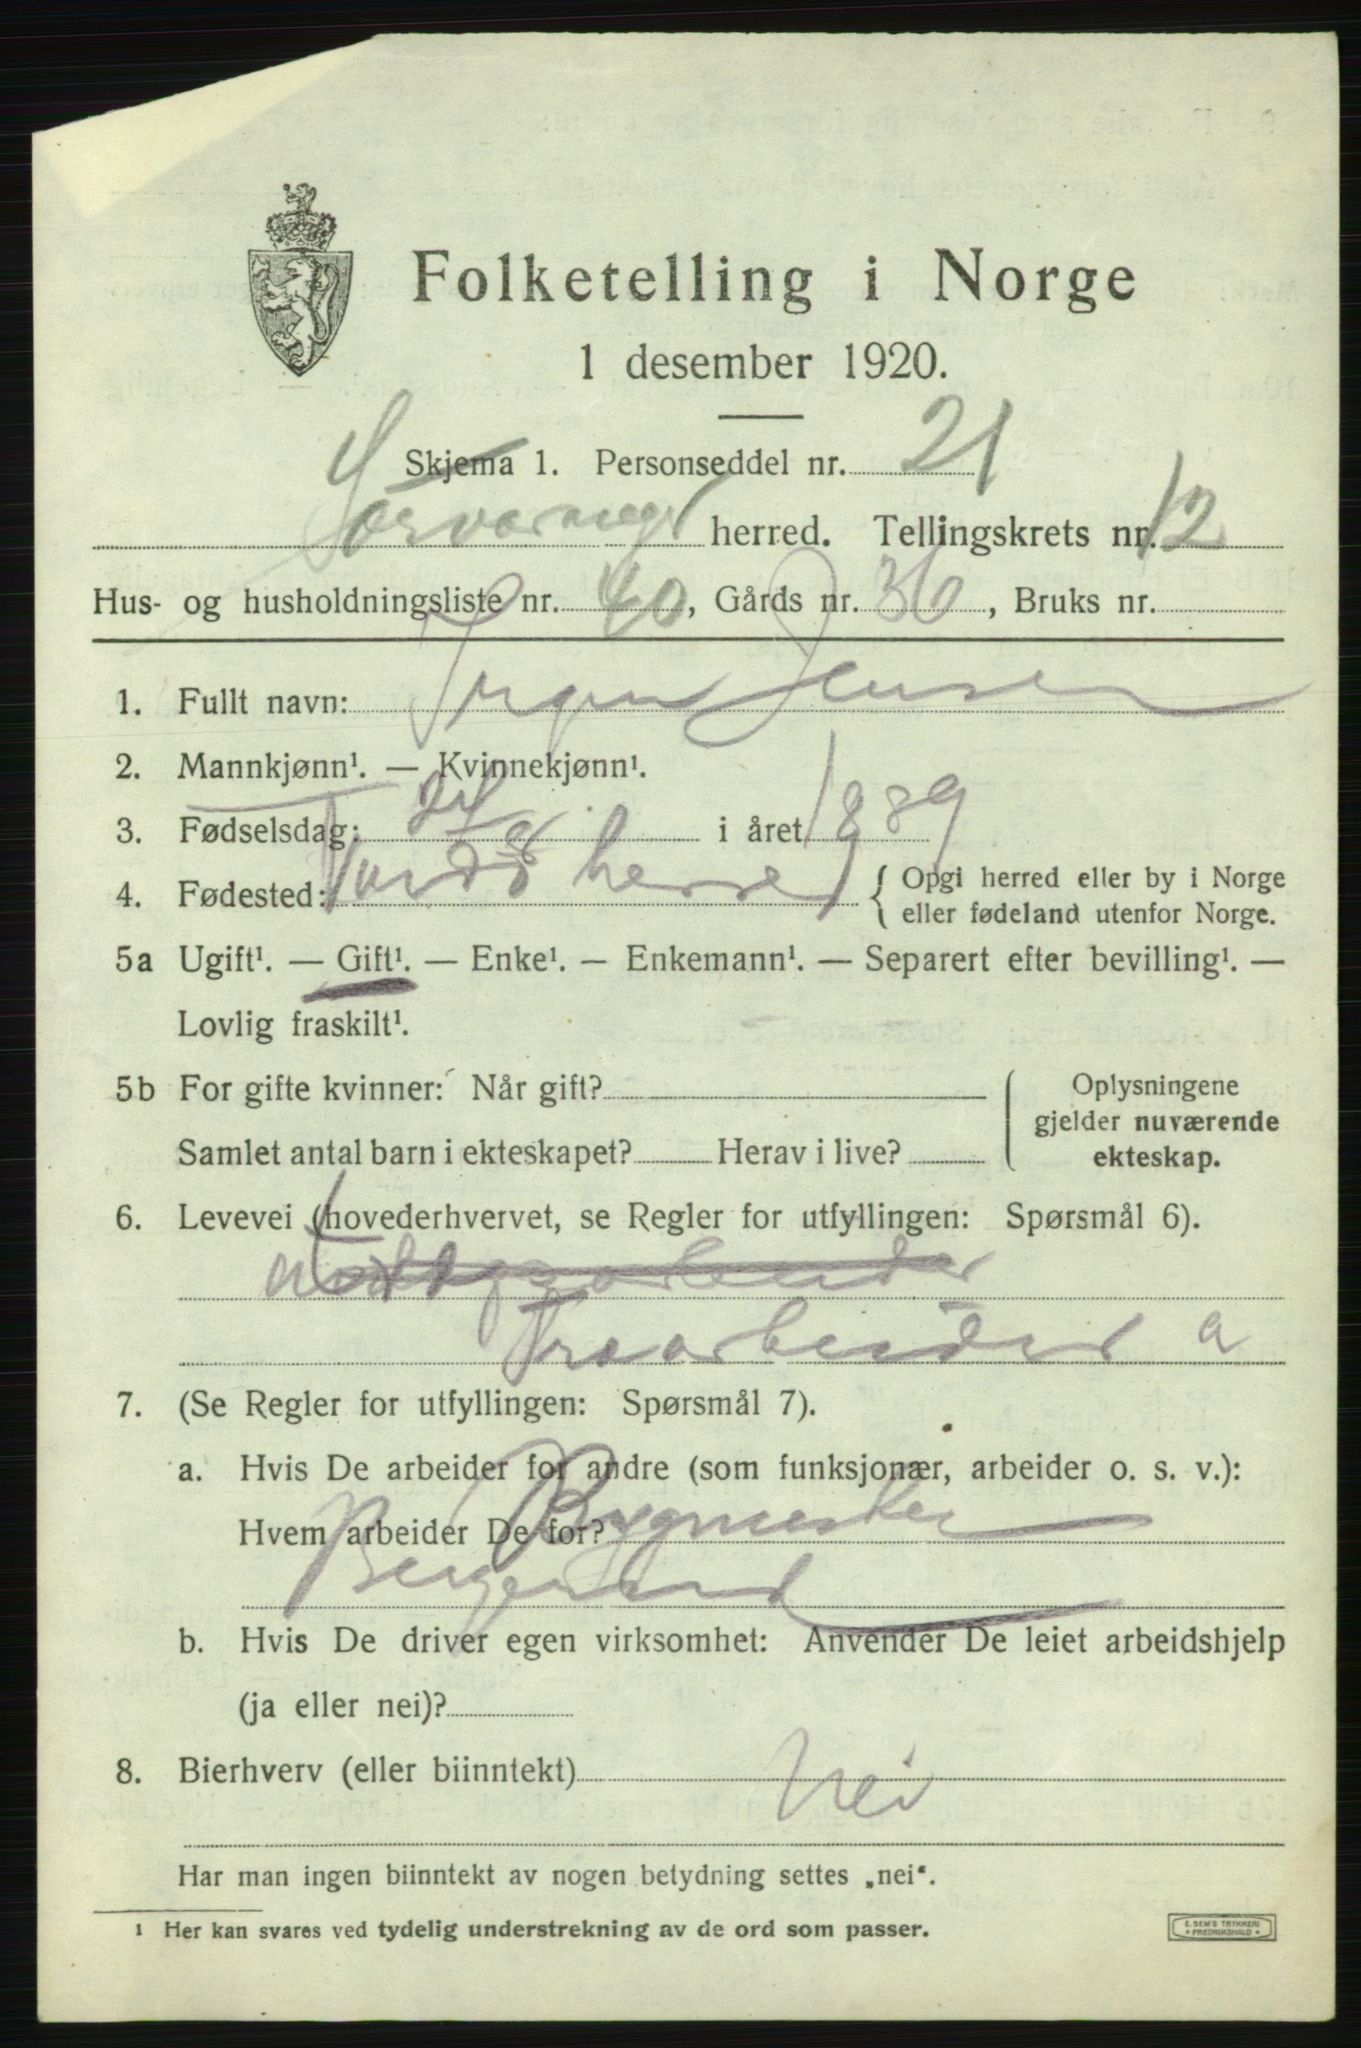 Folketelling i Norge
1 desember 1920.
Skjema 1. Personseddel nr. 21
Sørvaranger herred. Tellingskrets nr. 12
Hus- og husholdningsliste nr. 40, Gårds nr. 36, Bruks nr.
1. Fullt navn: Jensen
2. Mannkjønn¹. — Kvinnekjønn¹.
3. Fødselsdag: 24/8 i året 1889
4. Fødested: Vardø herred { Opgi herred eller by i Norge
eller fødeland utenfor Norge.
5a Ugift¹. — Gift¹. — Enke¹. — Enkemann¹. — Separert efter bevilling¹. —
Lovlig fraskilt¹.
5b For gifte kvinner: Når gift? ( Oplysningene
gjelder nuværende
ekteskap.
Samlet antal barn i ekteskapet? Herav i live?
6. Levevei (hovederhvervet, se Regler for utfyllingen: Spørsmål 6).
Træarbeider a
7. (Se Regler for utfyllingen: Spørsmål 7).
a. Hvis De arbeider for andre (som funksjonær, arbeider o. s. v.):
Hvem arbeider De for? Bygmester
b. Hvis De driver egen virksomhet: Anvender De leiet arbeidshjelp
(ja eller nei)?
8. Bierhverv (eller biinntekt) Nei
Har man ingen biinntekt av nogen betydning settes „nei“.
¹ Her kan svares ved tydelig understrekning av de ord som passer.
E. SEM'S TRYKKERI
• FREDRIKSHALD •